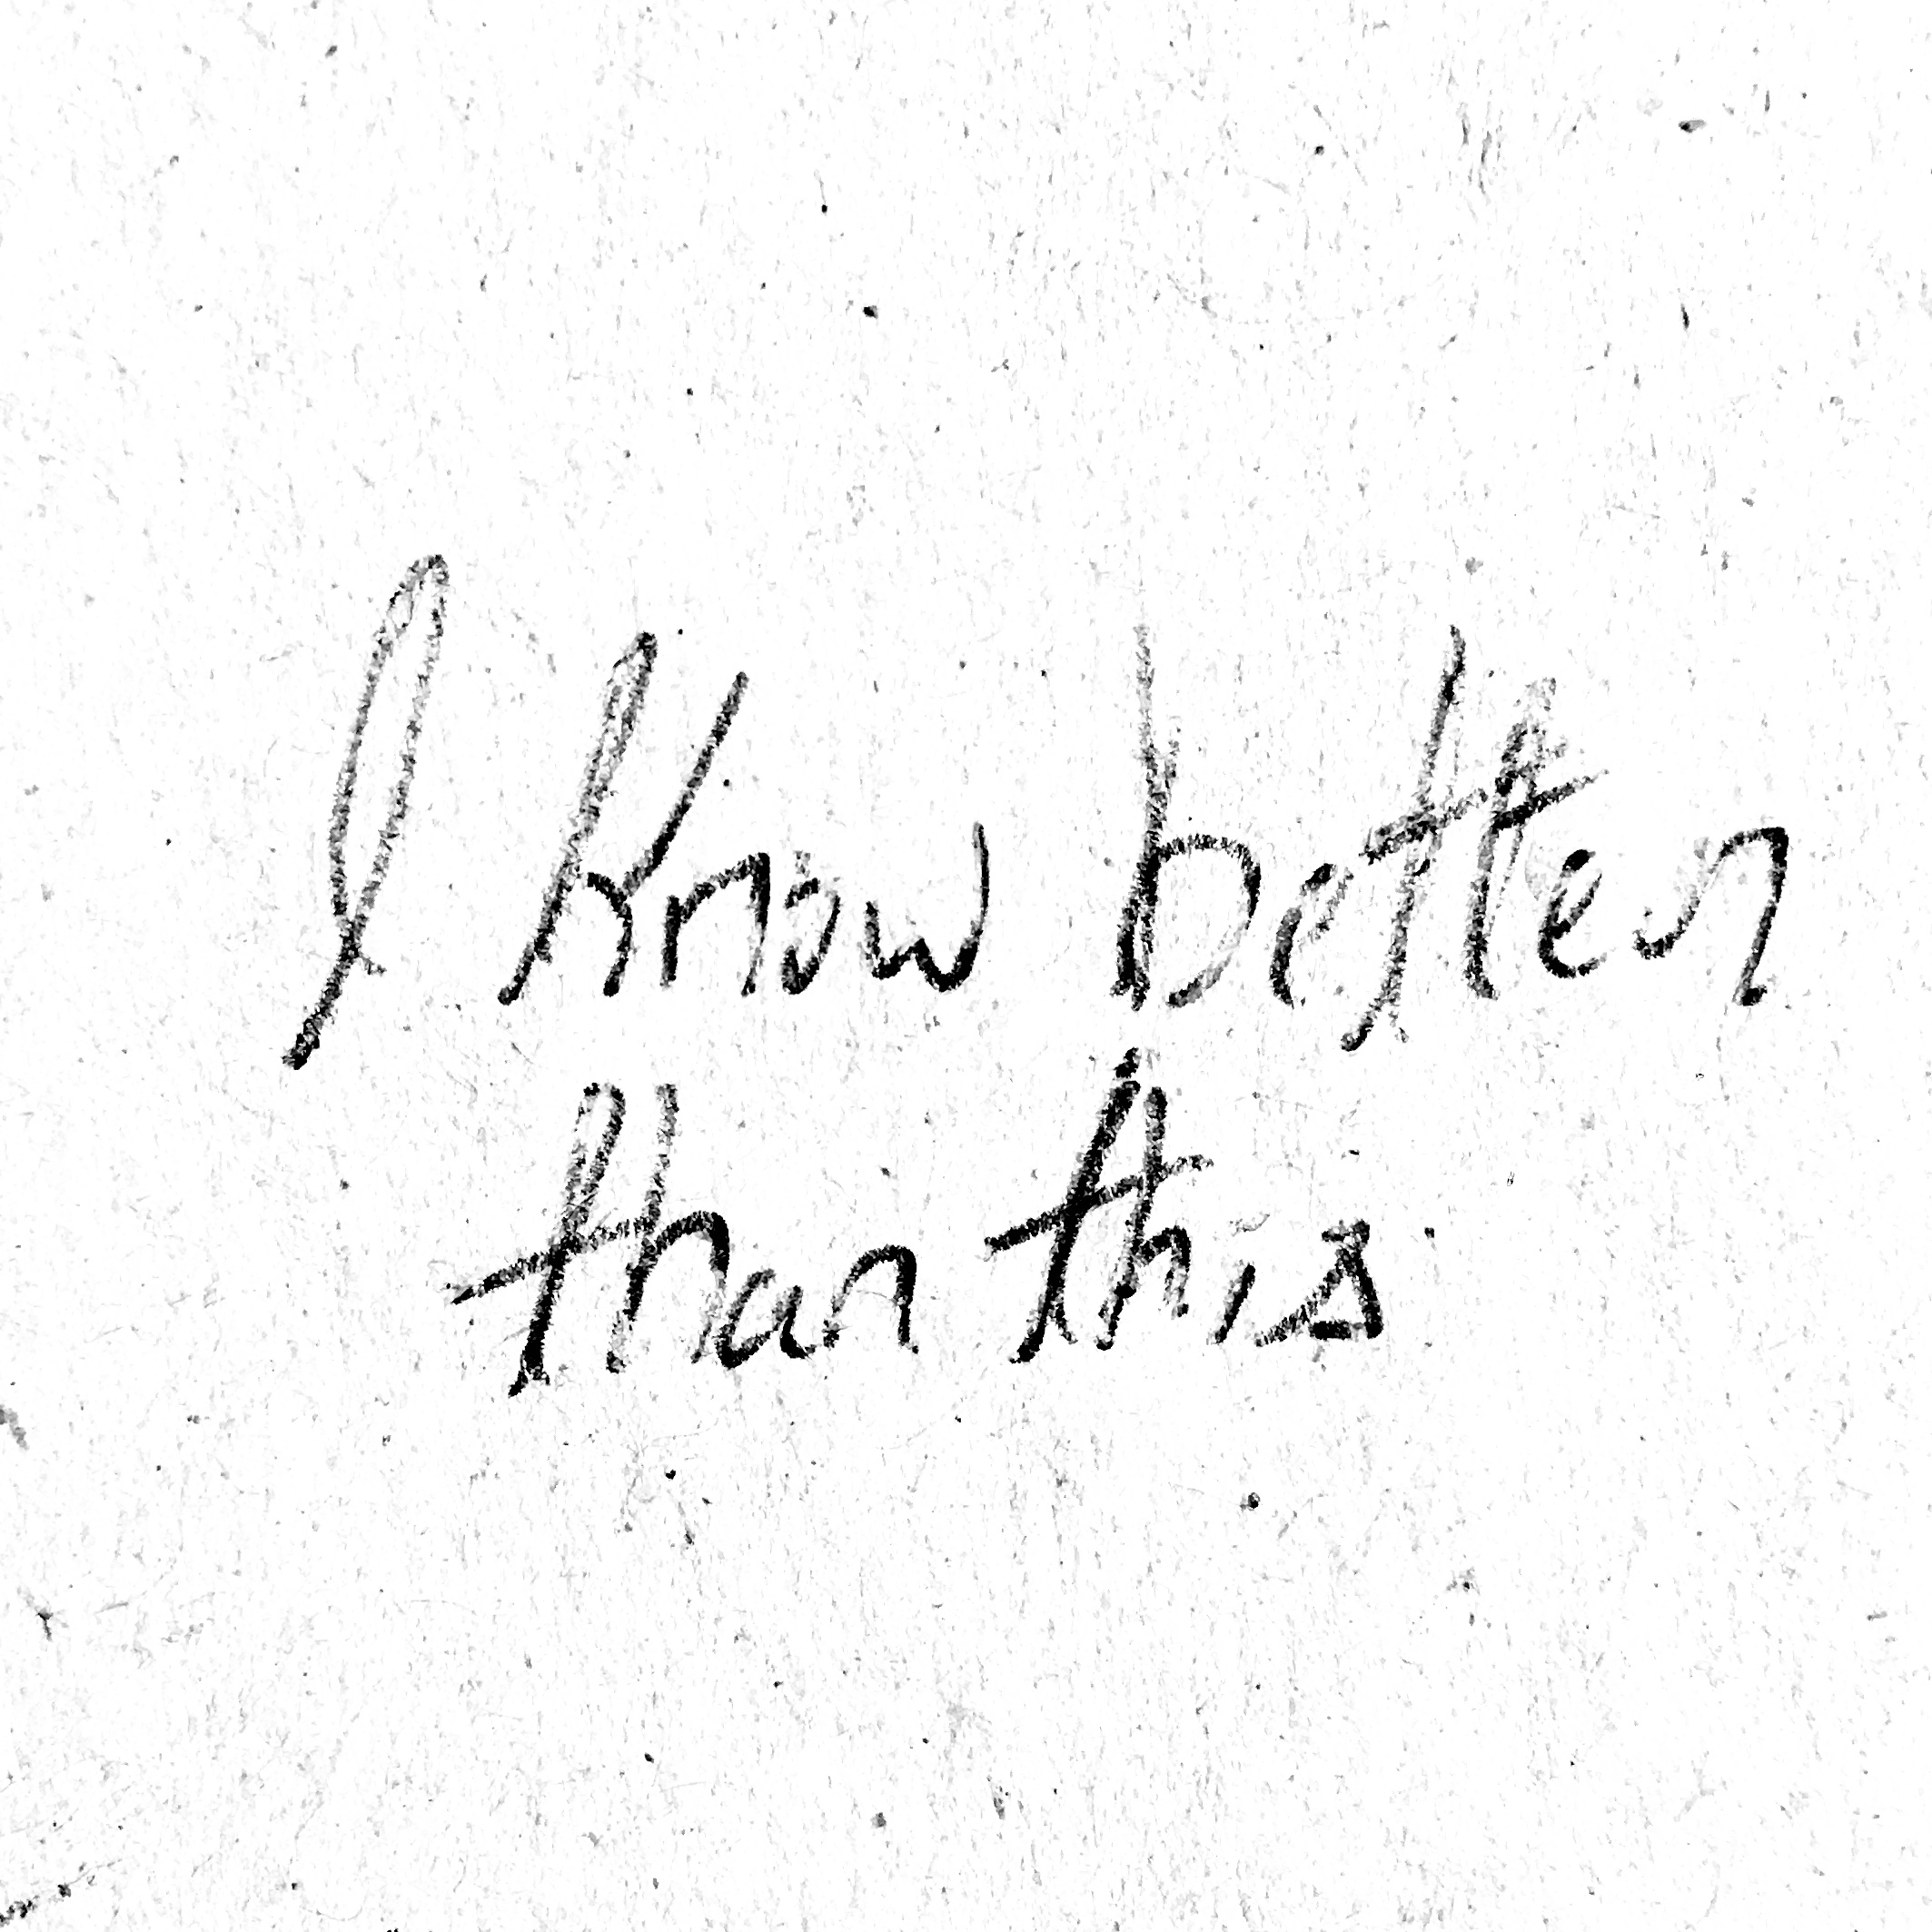 I know better
than this